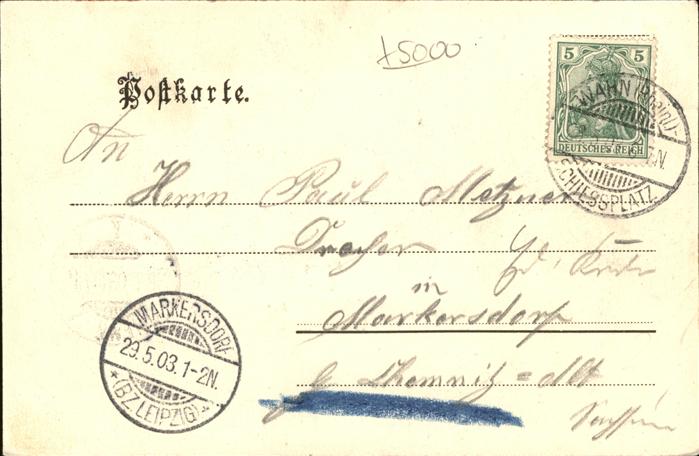 +5000
Postkarte.
5 5
DEUTSCHES REICH
WAHN (RHEINL)
SCHIESSPLATZ
An
Herrn Paul Metzner
in
Markersdorf
b Chemnitz = Alt
Sachsen
MARKERSDORF
29.5.03.1-2N.
*(BZ.LEIPZIG)*